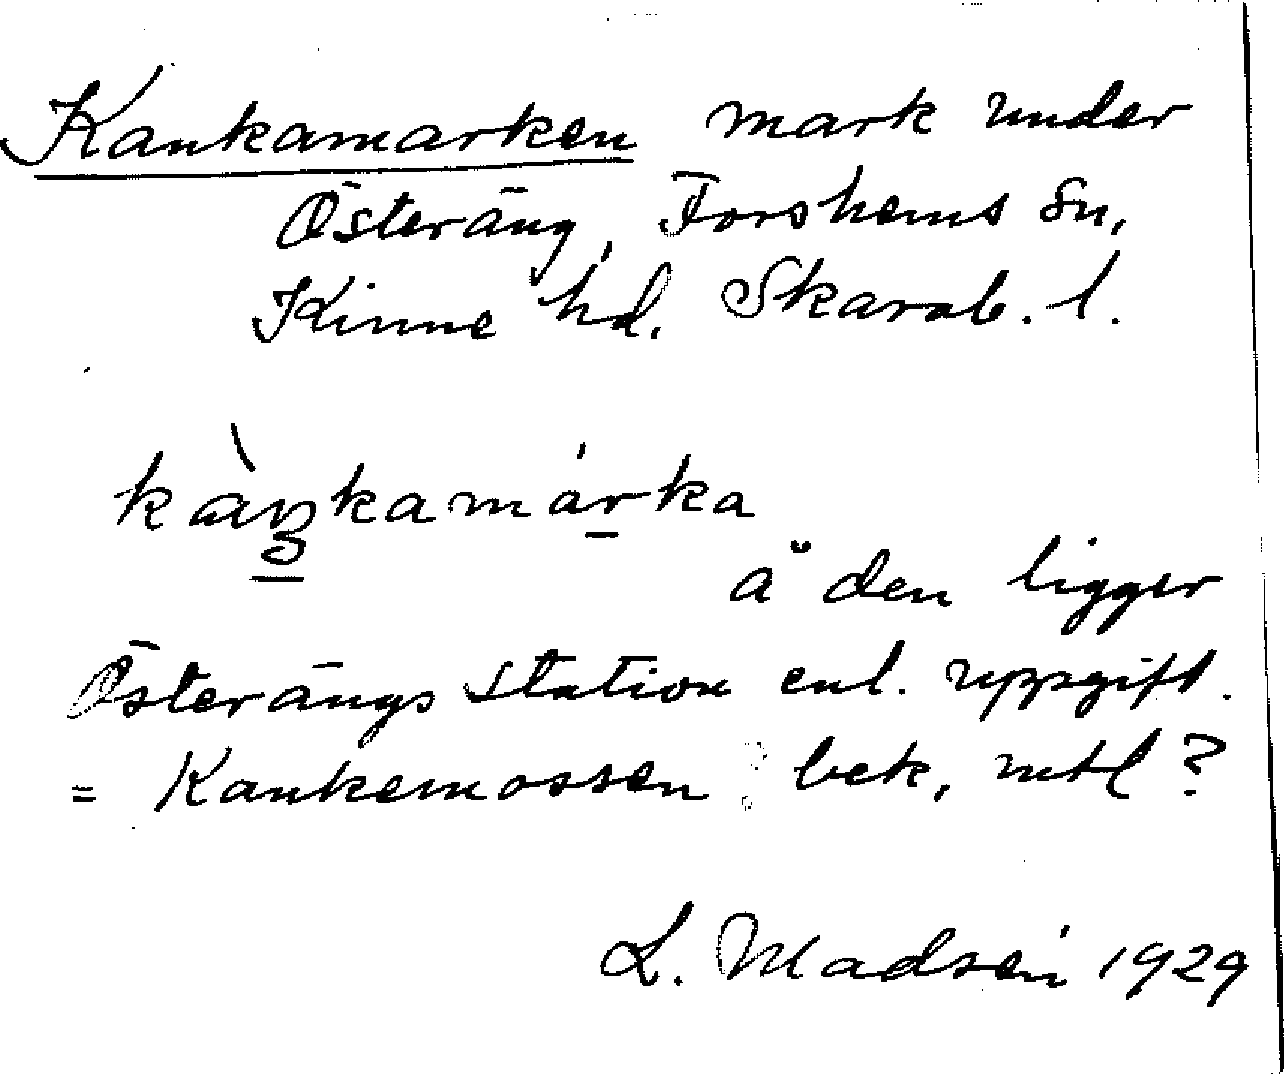 Kankamarken mark under
Österäng, Forshems Sn,
Kinne hd. Skarab. l.
kàŋkamárka
å den ligger
Österängs station enl. uppgift.
= Kankemossen bek, mtl?
L. Madsén 1929